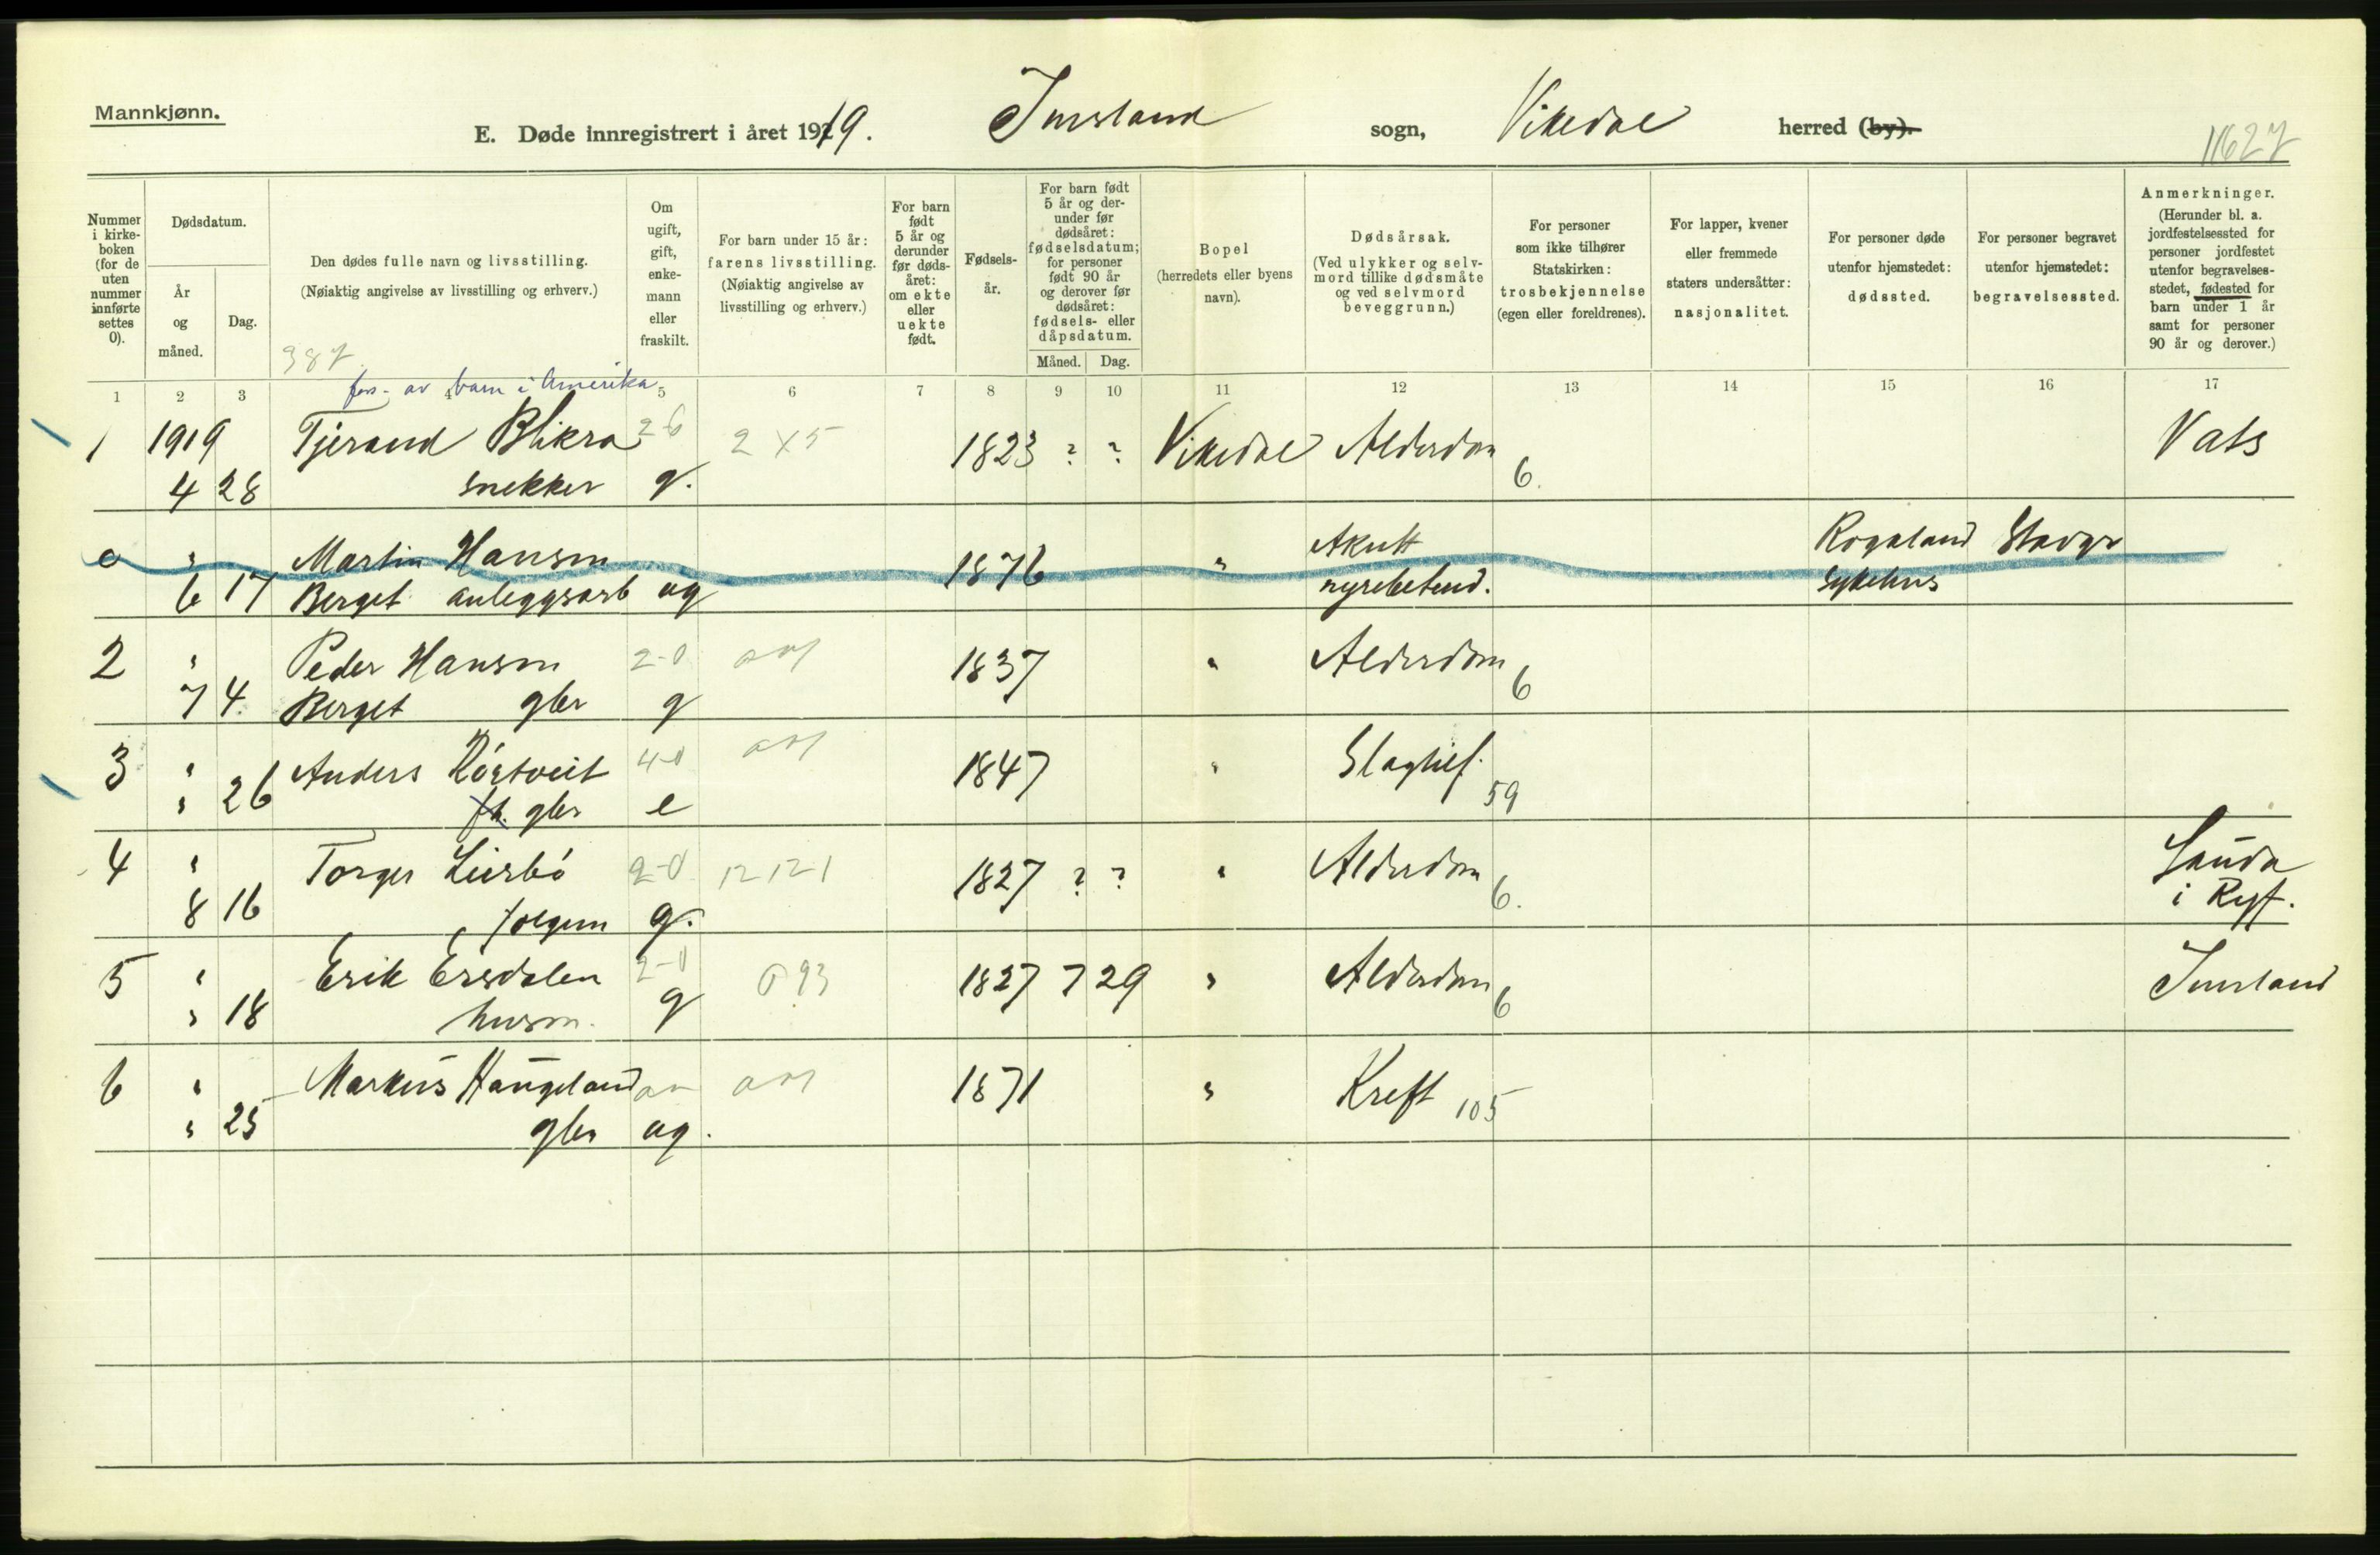 Mannkjønn.
E. Døde innregistrert i året 1919. Imsland sogn, Vikedal herred (by).
11627
Nummer i kirke-boken (for de uten nummer innførte settes 0).
Dødsdatum.
År og måned.
Dag.
Den dødes fulle navn og livsstilling.
(Nøiaktig angivelse av livsstilling og erhverv.)
387
Om ugift, gift, enke-mann eller fraskilt.
For barn under 15 år: farens livsstilling.
(Nøiaktig angivelse av livsstilling og erhverv.)
For barn født 5 år og derunder før døds-året: om ekte eller uekte født.
Fødsels-år.
For barn født 5 år og der-under før dødsåret: fødselsdatum; for personer født 90 år og derover før dødsåret: fødsels- eller dåpsdatum.
Måned. Dag.
Bopel
(herredets eller byens navn).
Dødsårsak.
(Ved ulykker og selv-mord tillike dødsmåte og ved selvmord beveggrunn.)
For personer som ikke tilhører Statskirken: trosbekjennelse (egen eller foreldrenes).
For lapper, kvener eller fremmede staters undersåtter: nasjonalitet.
For personer døde utenfor hjemstedet: dødssted.
For personer begravet utenfor hjemstedet: begravelsessted.
Anmerkninger.
(Herunder bl. a. jordfestelsessted for personer jordfestet utenfor begravelses-stedet, fødested for barn under 1 år samt for personer 90 år og derover.)
1 2 3 4 5 6 7 8 9 10 11 12 13 14 15 16 17
fors. av barn i Amerika
1 1919 Tjerand Blikra 26 2 X 5 1823 ? ? Vikedal Alderdom 6. Vats
4 28 snekker g.
0 " Martin Hansen 1876 " Akutt Rogaland Stavgr
6 17 Berget anleggsarb ug nyrebetend. sykehus
2 " Peder Hansen 2-0 1837 " Alderdom 6
7 4. Berget gbr g
3 " Anders Rörtveit 4-0 1847 " Slagtilf. 59
" 26 fh. gbr e
4 " Torger Leirbö 2-0 12 12 1 1827 ? ? " Alderdom 6. Sauda
8 16 folgem g. i Ryf.
5 " Erik Ersdalen 2-0 0 93 1827 7 29 " Alderdom 6 Imsland
" 18 husm. g
6 " Markus Haugeland 1871 " Kreft 105
" 25 gbr ug.